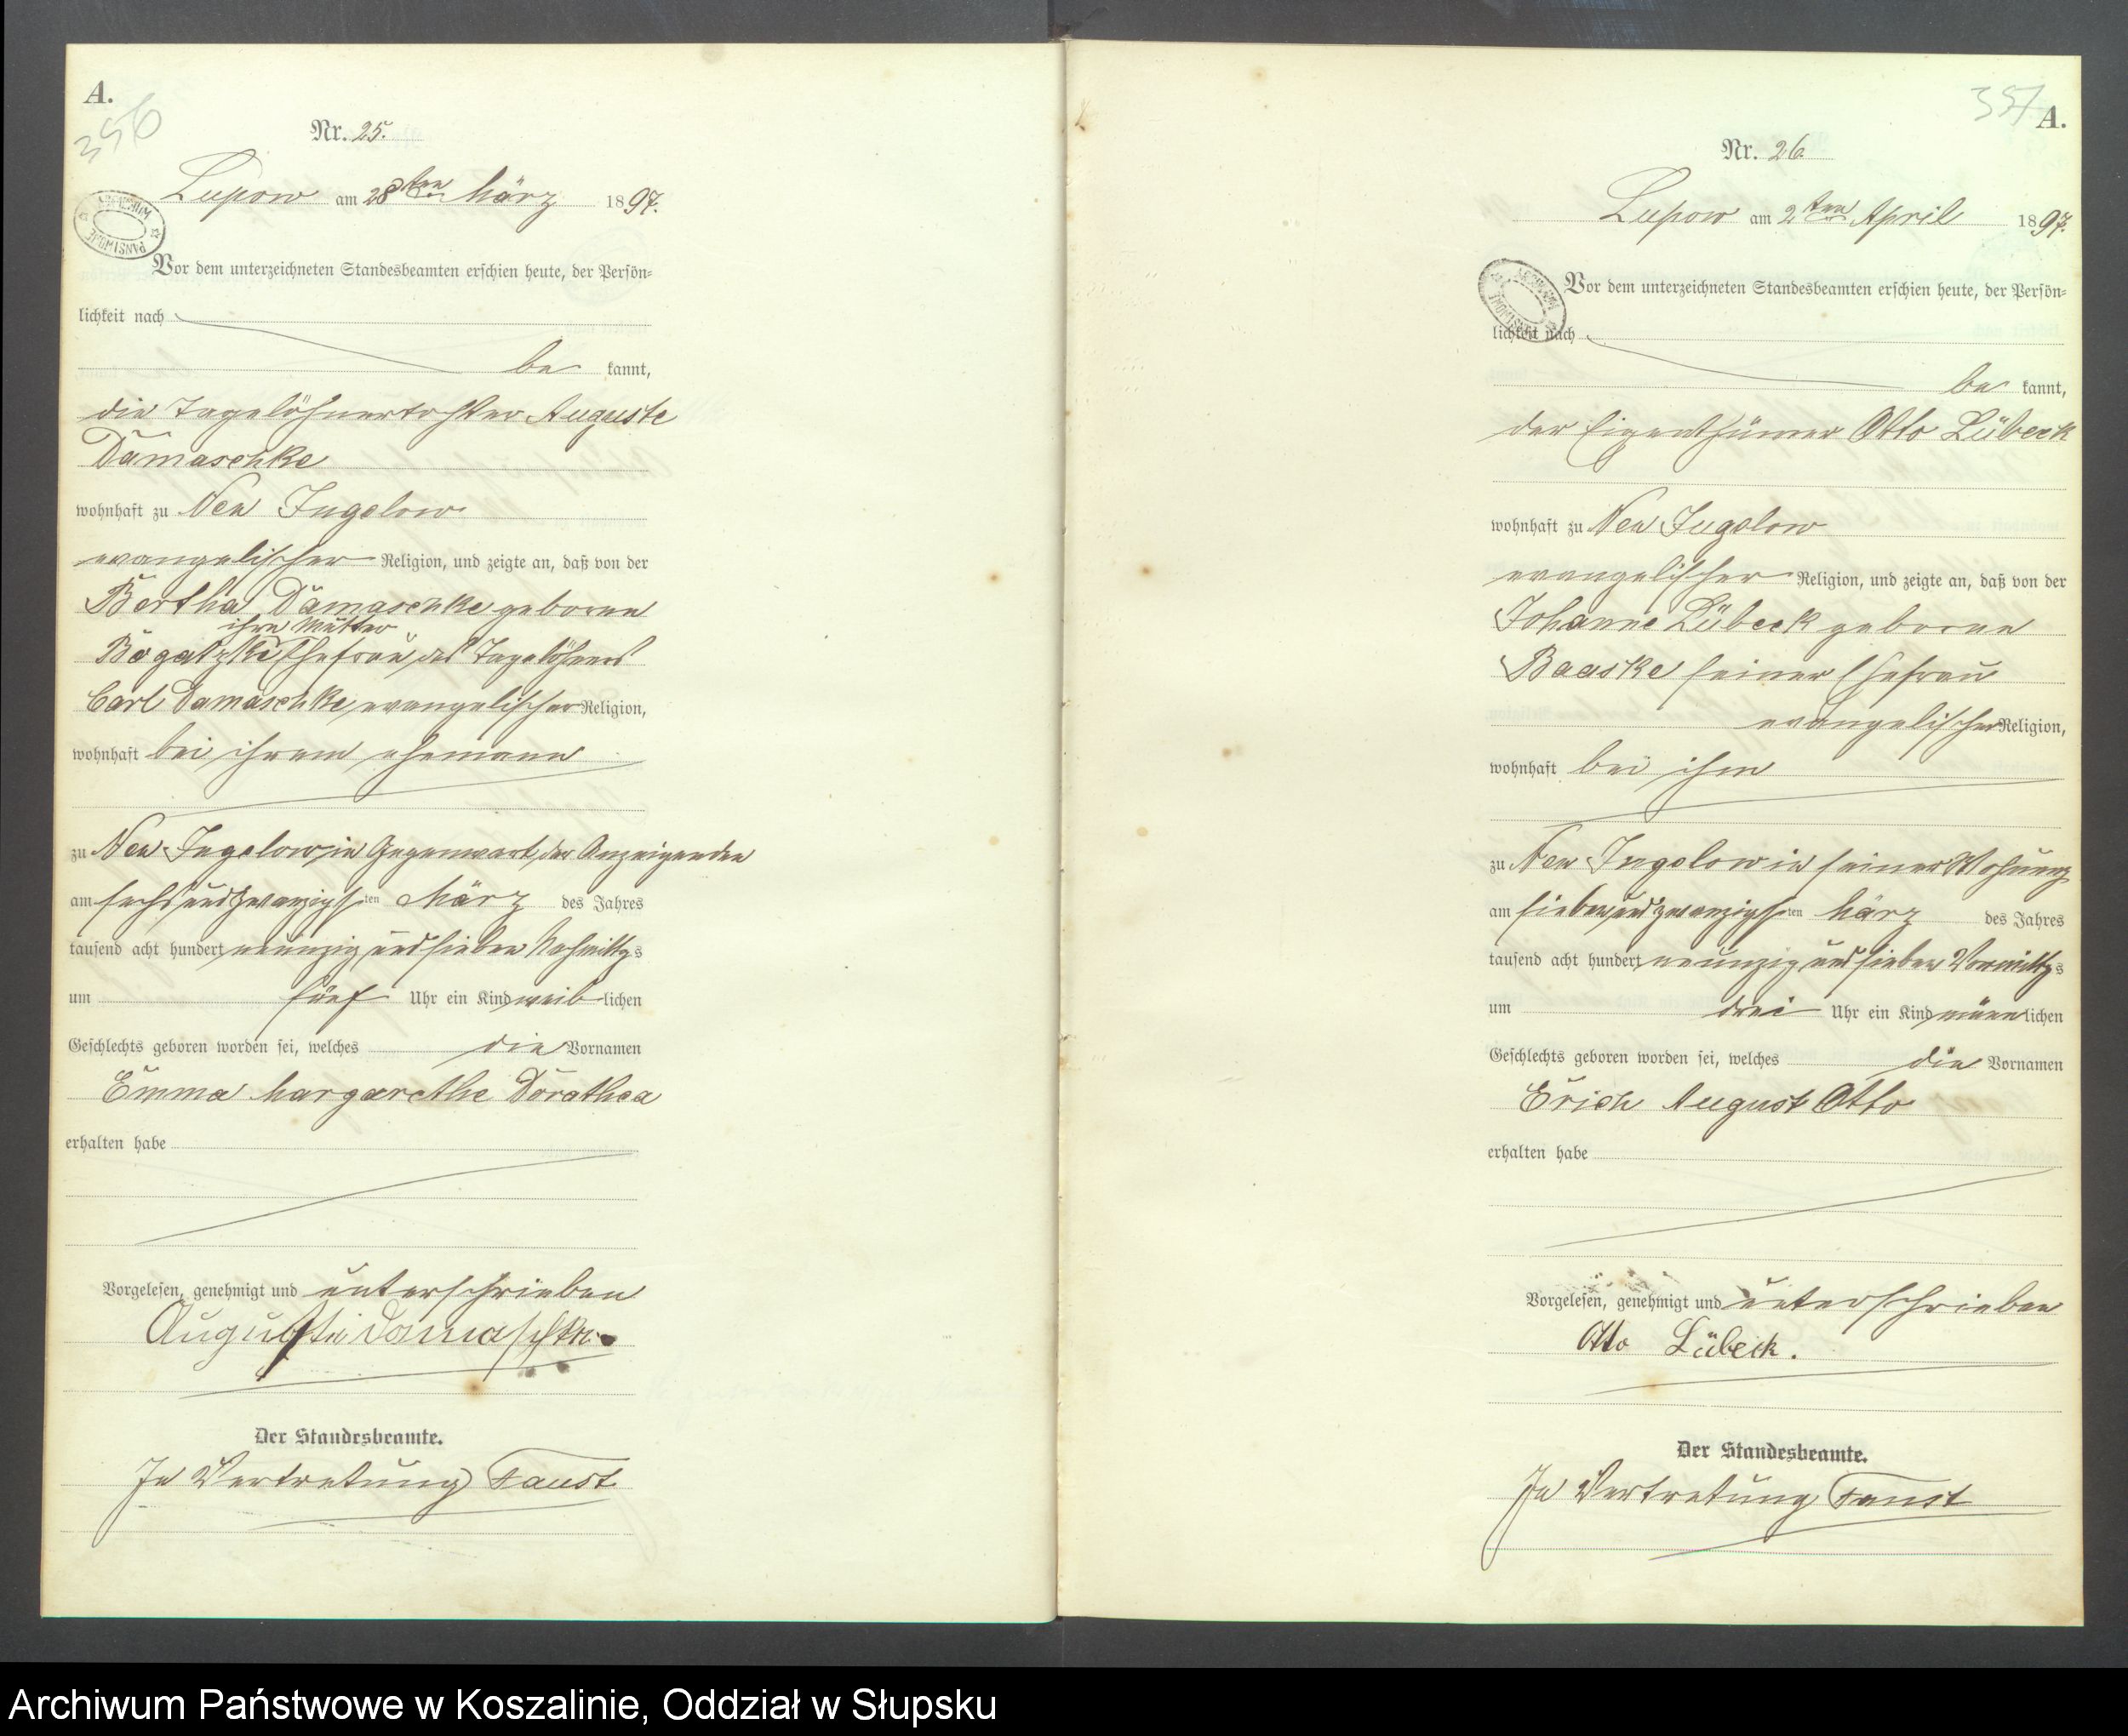 A.
356
Nr. 25.
Lupow am 28ten März 1897.
Vor dem unterzeichneten Standesbeamten erschien heute, der Persön-
lichkeit nach
be kannt,
die Tagelöhnertochter Auguste
Damaschke
wohnhaft zu Neu Jugelow
evangelischer Religion, und zeigte an, daß von der
Bertha Damaschke geborene
ihre Mutter
Bogatzki Ehefrau des Tagelöhners
Carl Damaschke, evangelischer Religion,
wohnhaft bei ihrem Ehemann
zu Neu Jugelow, in Gegenwart der Anzeigenden
am sechsundzwanzigsten März des Jahres
tausend acht hundert neunzig und sieben Nachmittags
um fünf Uhr ein Kind weiblichen
Geschlechts geboren worden sei, welches die Vornamen
Emma Margarethe Dorothea
erhalten habe
Vorgelesen, genehmigt und unterschrieben
Auguste Damaschke.
Der Standesbeamte.
In Vertretung Faust
357
A.
Nr. 26
Lupow am 2ten April 1897.
Vor dem unterzeichneten Standesbeamten erschien heute, der Persön-
lichkeit nach
be kannt,
der Eigenthümer Otto Lübeck
wohnhaft zu Neu Jugelow
evangelischer Religion, und zeigte an, daß von der
Johanne Lübeck geborene
Baaske seiner Ehefrau
evangelischer Religion,
wohnhaft bei ihm
zu Neu Jugelow in seiner Wohnung
am siebenundzwanzigsten März des Jahres
tausend acht hundert neunzig und sieben Vormittags
um drei Uhr ein Kind männlichen
Geschlechts geboren worden sei, welches die Vornamen
Erich August Otto
erhalten habe
Vorgelesen, genehmigt und unterschrieben
Otto Lübeck.
Der Standesbeamte.
In Vertretung Faust
Archiwum Państwowe w Koszalinie, Oddział w Słupsku